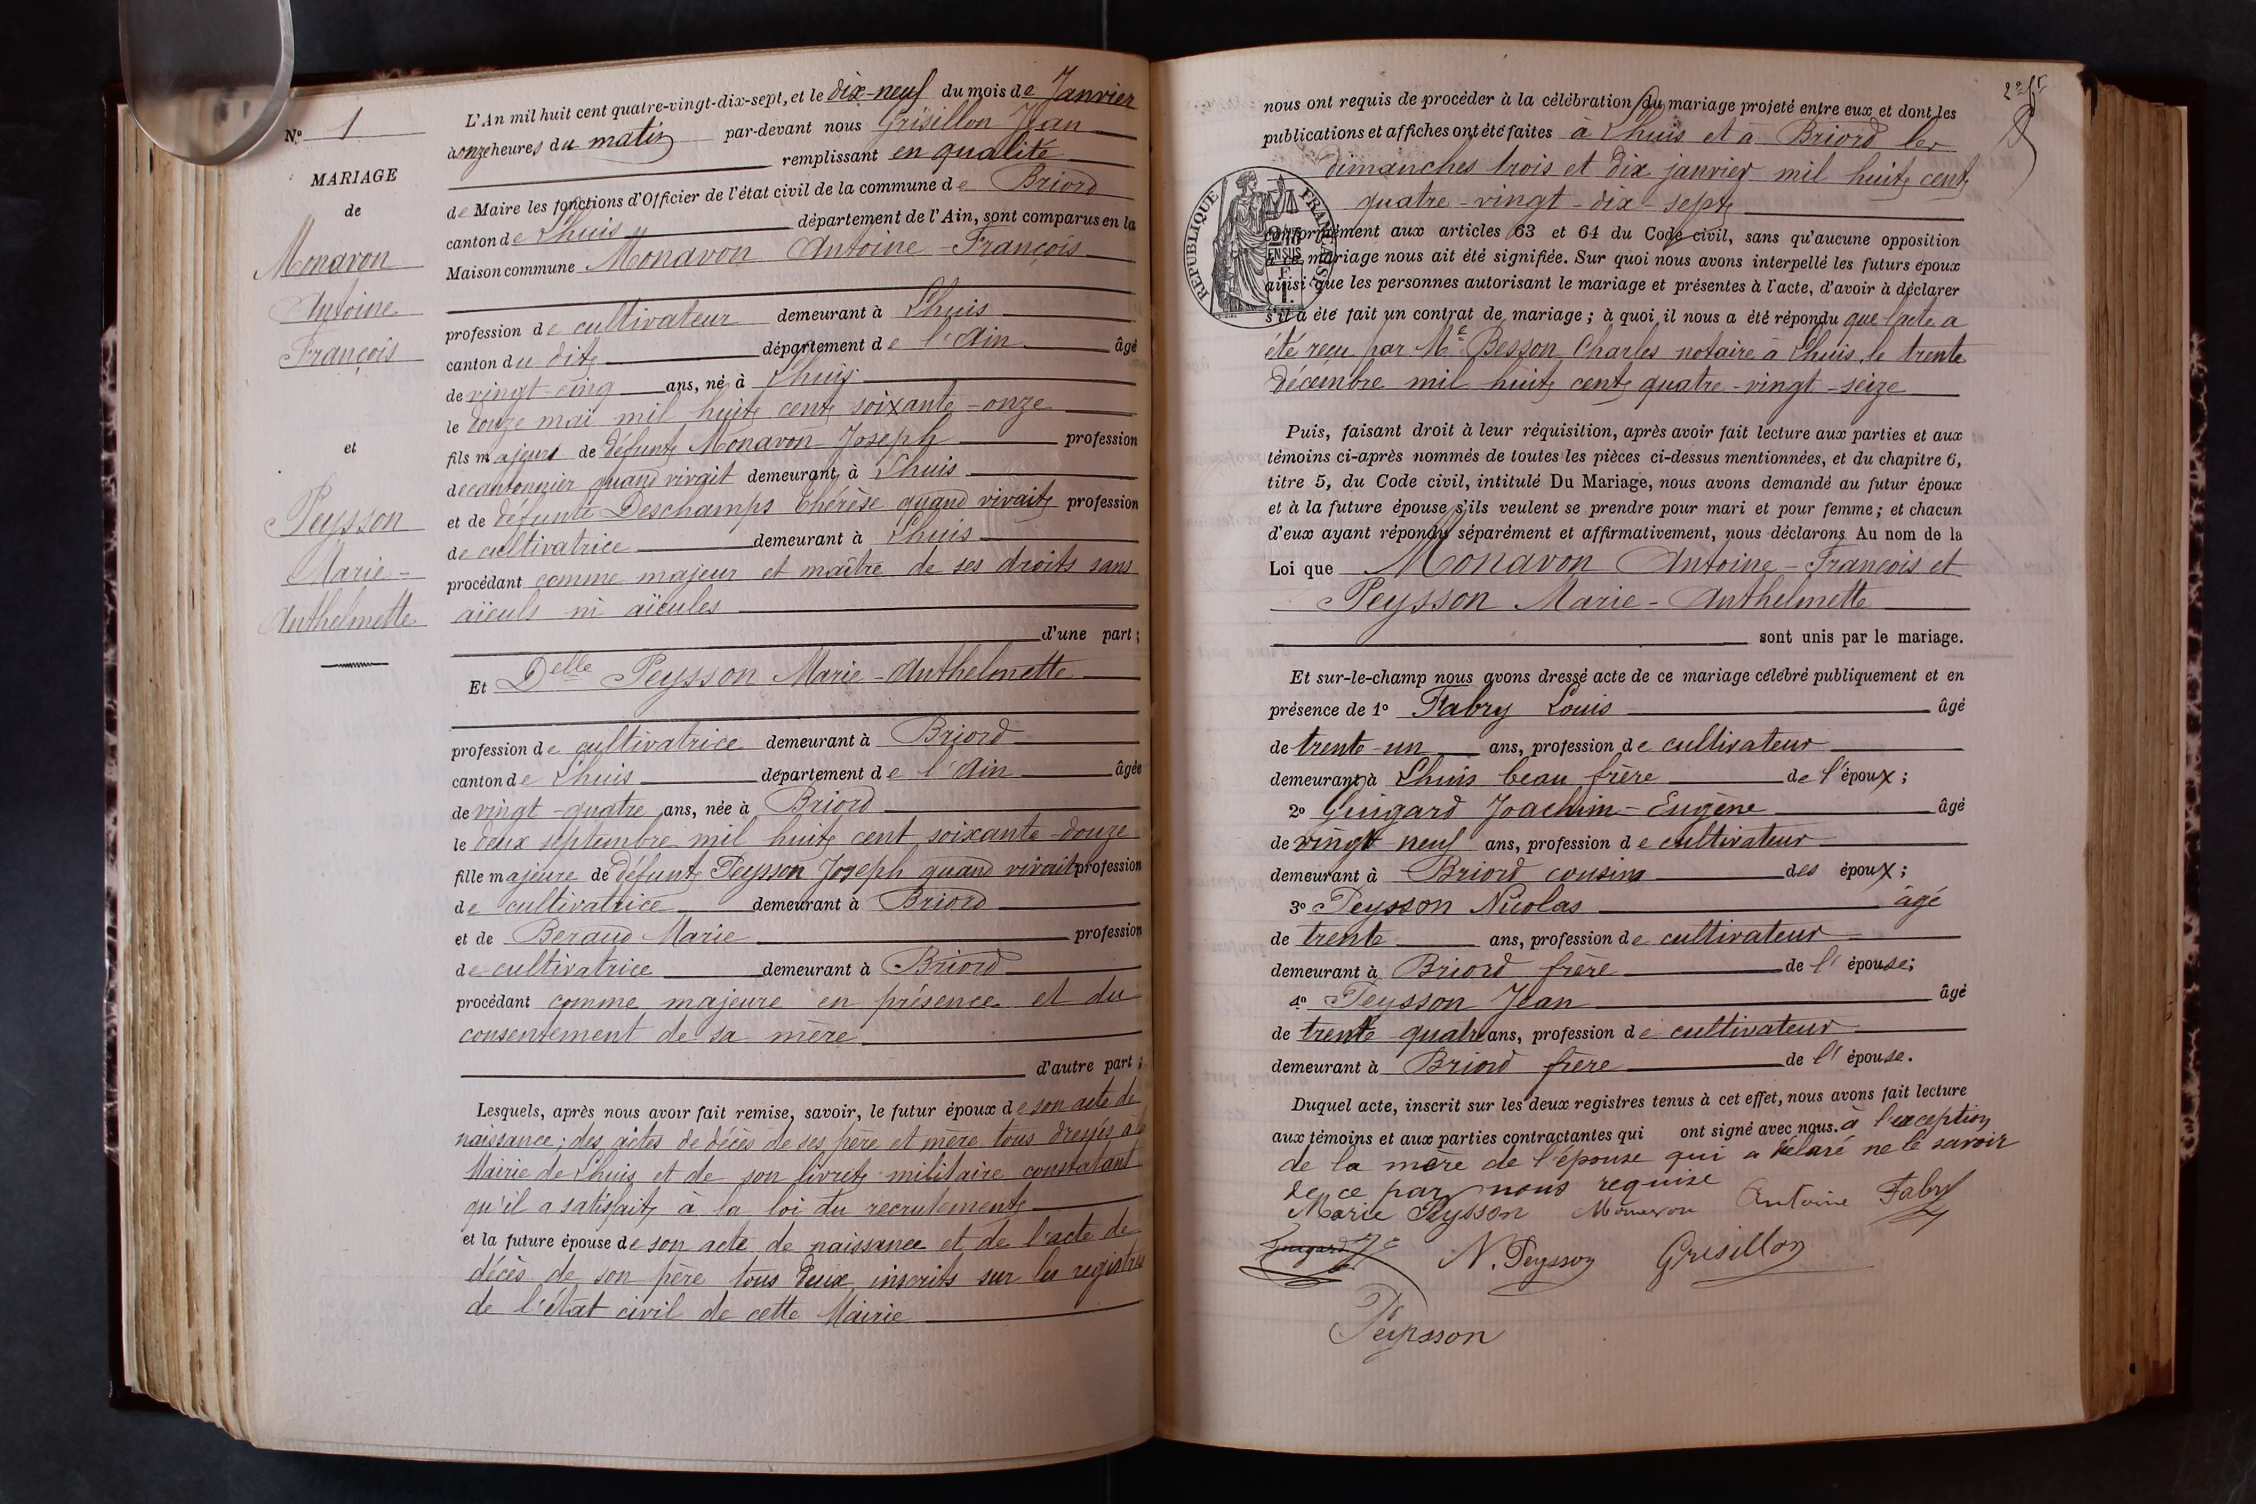 N.° 1
MARIAGE
de
Monavon
Antoine
François
et
Peysson
Marie-
Anthelmette
L'An mil huit cent quatre-vingt-dix-sept, et le dix-neuf du mois de Janvier
à onze heures du matin par-devant nous Grisillon Jean
remplissant en qualité
de Maire les fonctions d'Officier de l'état civil de la commune de Briord
canton de Lhuis département de l'Ain, sont comparus en la
Maison commune Monavon Antoine-François
profession de cultivateur demeurant à Lhuis
canton du dit département de l'Ain âgé
de vingt-cinq ans, né à Lhuis
le douze mai mil huit cent soixante-onze
fils majeur de défunt Monavon Joseph profession
de cantonnier quand vivait demeurant à Lhuis
et de défunte Deschamps Thérèse quand vivait profession
de cultivatrice demeurant à Lhuis
procédant comme majeur et maître de ses droits sans
aïeuls ni aïeules
d'une part ;
Et Delle Peysson Marie-Anthelmette
profession de cultivatrice demeurant à Briord
canton de Lhuis département de l'Ain âgée
de vingt-quatre ans, née à Briord
le deux septembre mil huit cent soixante-douze
fille majeure de défunt Peysson Joseph quand vivait profession
de cultivatrice demeurant à Briord
et de Beraud Marie profession
de cultivatrice demeurant à Briord
procédant comme majeure en présence et du
consentement de sa mère
d'autre part ;
Lesquels, après nous avoir fait remise, savoir, le futur époux de son acte de
naissance ; des actes de décès de ses père et mère tous dressés à la
Mairie de Lhuis et de son livret militaire constatant
qu'il a satisfait à la loi du recrutement
et la future épouse de son acte de naissance et de l'acte de
décès de son père tous deux inscrits sur les registres
de l'état civil de cette Mairie
nous ont requis de procéder à la célébration du mariage projeté entre eux et dont les
publications et affiches ont été faites à Lhuis et à Briord les
dimanches trois et dix janvier mil huit cent
quatre-vingt-dix-sept
RÉPUBLIQUE FRANÇAISE
conformément aux articles 63 et 64 du Code civil, sans qu'aucune opposition
à ce mariage nous ait été signifiée. Sur quoi nous avons interpellé les futurs époux
ainsi que les personnes autorisant le mariage et présentes à l'acte, d'avoir à déclarer
s'il a été fait un contrat de mariage ; à quoi il nous a été répondu que l'acte a
été reçu par Me Besson Charles notaire à Lhuis, le trente
décembre mil huit cent quatre-vingt-seize
Puis, faisant droit à leur réquisition, après avoir fait lecture aux parties et aux
témoins ci-après nommés de toutes les pièces ci-dessus mentionnées, et du chapitre 6,
titre 5, du Code civil, intitulé Du Mariage, nous avons demandé au futur époux
et à la future épouse s'ils veulent se prendre pour mari et pour femme ; et chacun
d'eux ayant répondu séparément et affirmativement, nous déclarons Au nom de la
Loi que Monavon Antoine-François et
Peysson Marie-Anthelmette
sont unis par le mariage.
Et sur-le-champ nous avons dressé acte de ce mariage célébré publiquement et en
présence de 1° Fabry Louis âgé
de trente-un ans, profession de cultivateur
demeurant à Lhuis beau frère de l'époux ;
2° Guigard Joachim-Eugène âgé
de vingt neuf ans, profession de cultivateur
demeurant à Briord cousin des époux ;
3° Peysson Nicolas âgé
de trente ans, profession de cultivateur
demeurant à Briord frère de l'épouse ;
4° Peysson Jean âgé
de trente quatre ans, profession de cultivateur
demeurant à Briord frère de l'épouse.
Duquel acte, inscrit sur les deux registres tenus à cet effet, nous avons fait lecture
aux témoins et aux parties contractantes qui ont signé avec nous. à l'exception
de la mère de l'épouse qui a déclaré ne le savoir
de ce par nous requise
Marie Peysson Monavon Antoine Fabry
Guigard Je N. Peysson Grisillon
Peysson